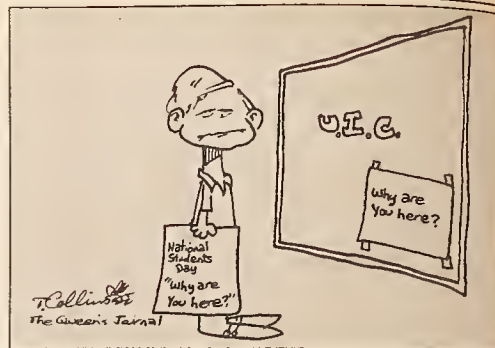 U.I.C.
Why are
You here?
National
Students
Day
"Why are
You here?"
T. Collins
The Queen's Journal